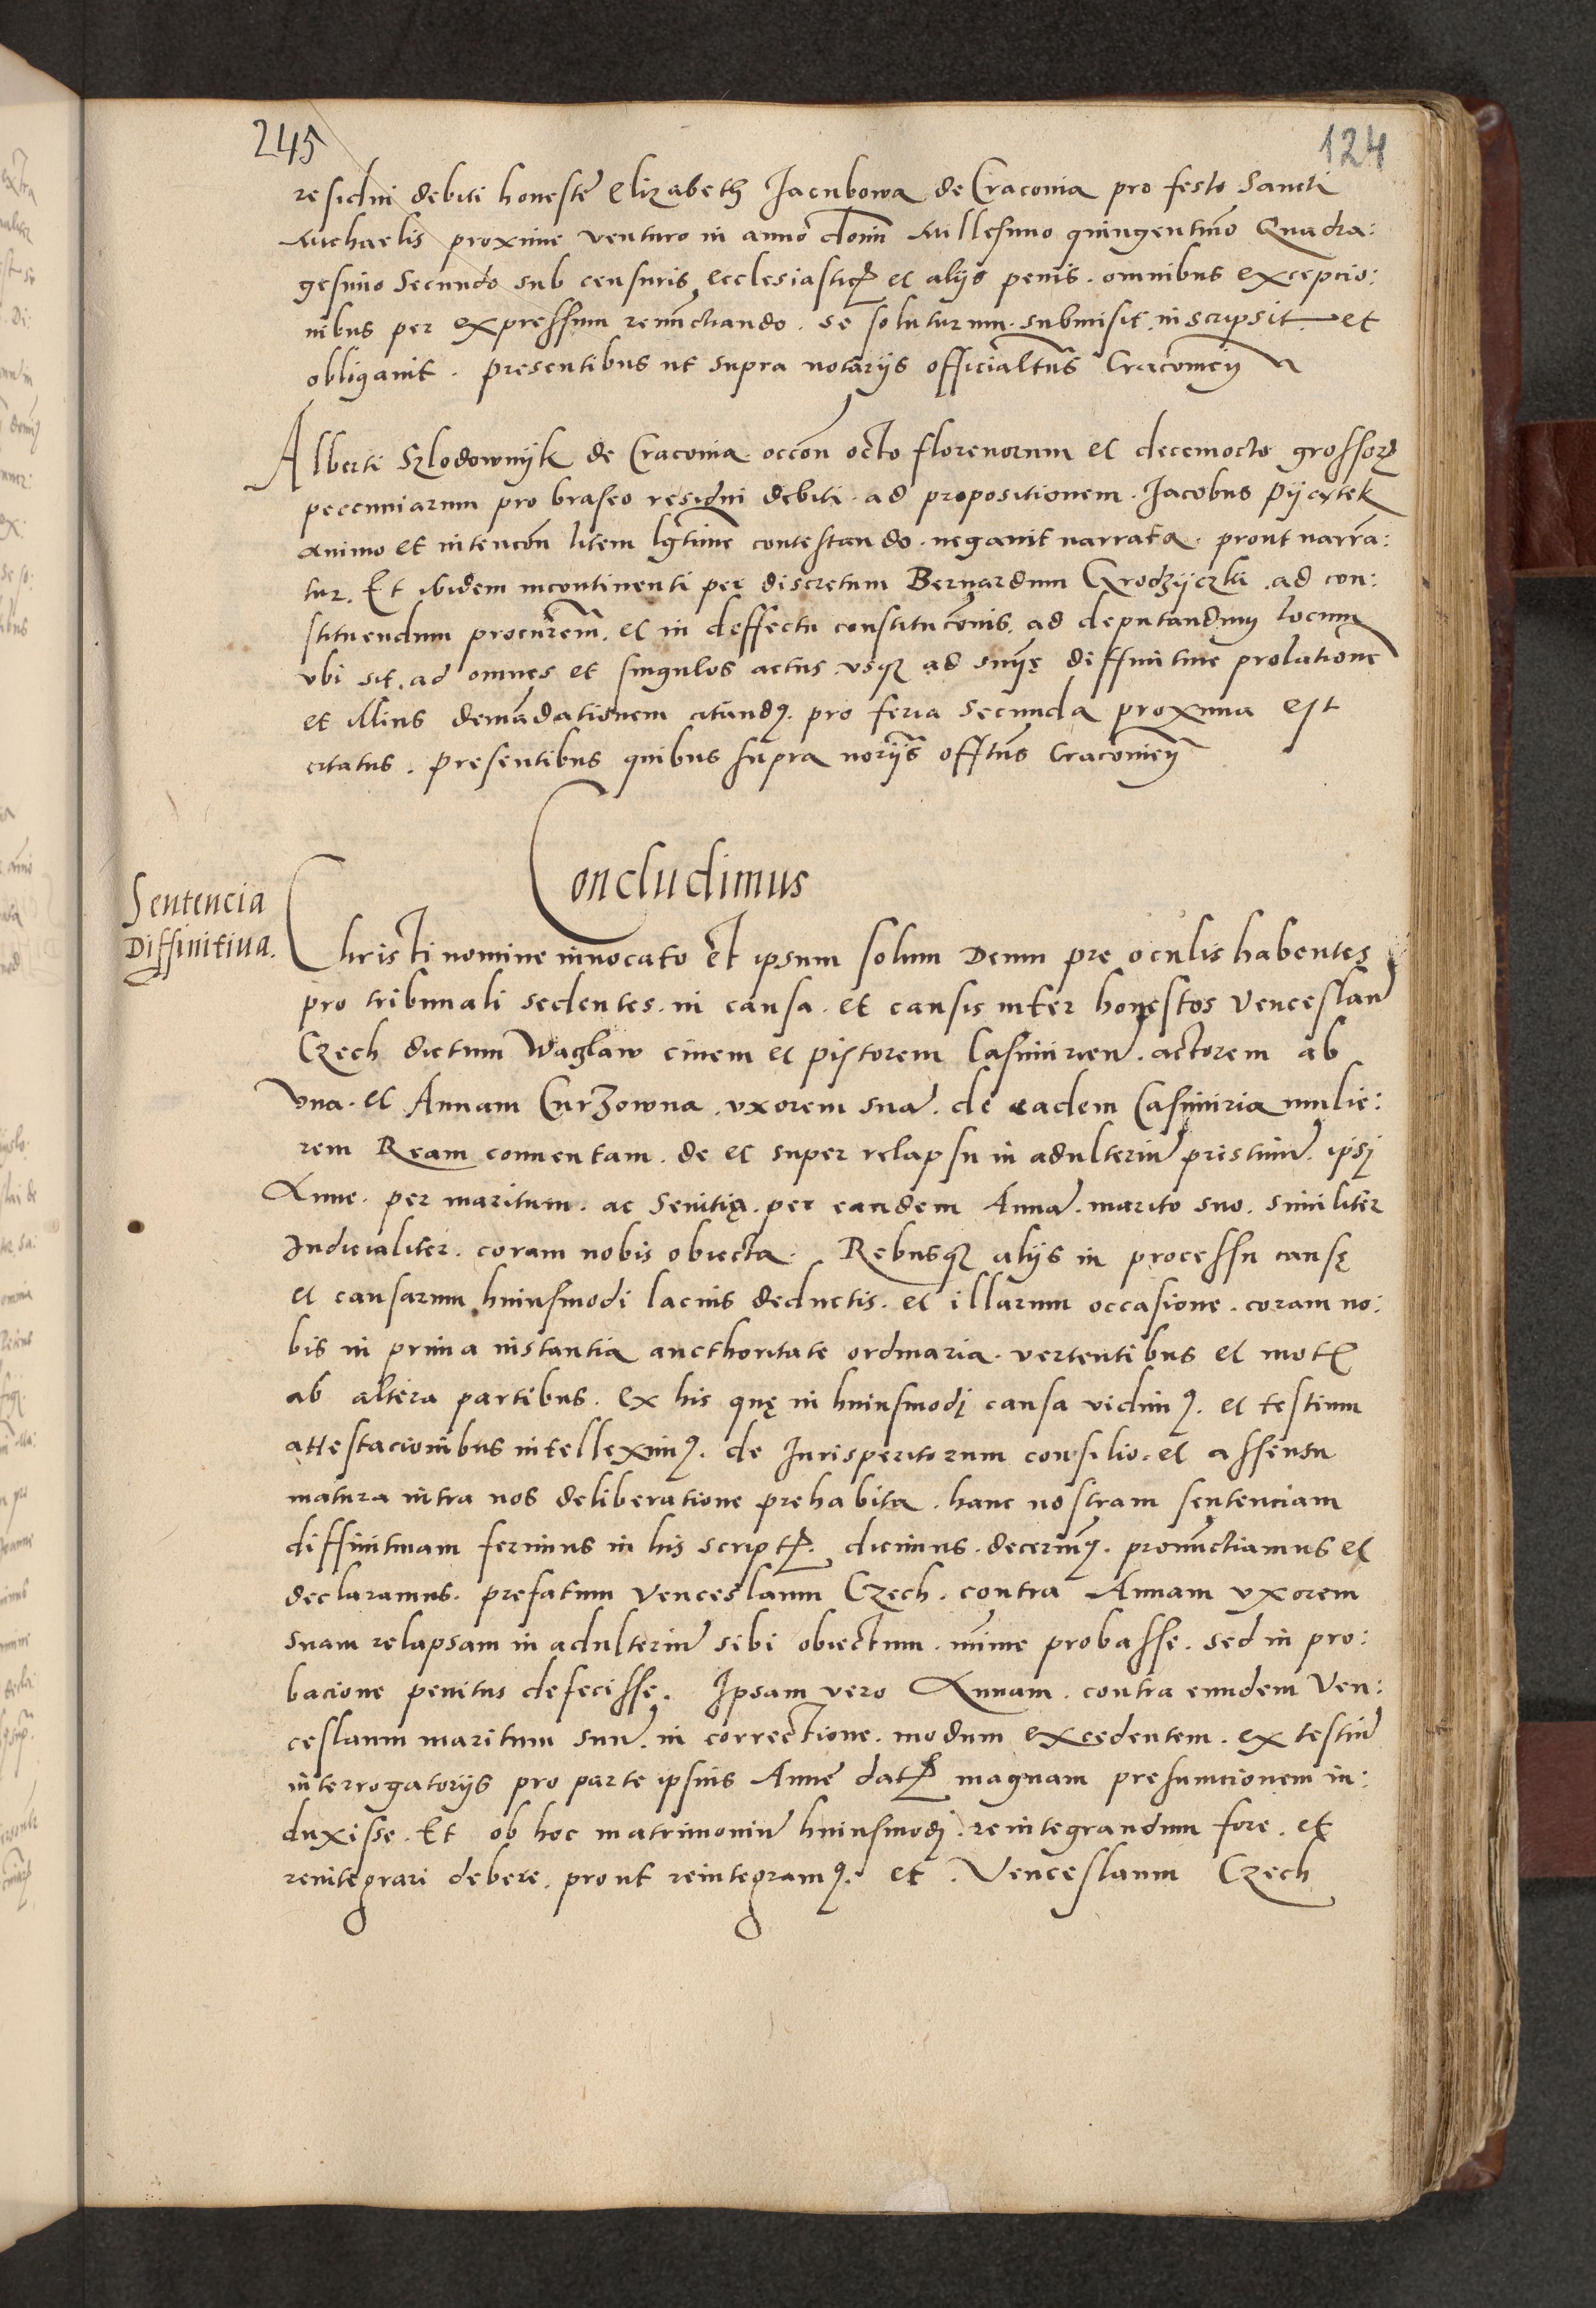 245
124
residui debiti honestę Elizabeth Jacubowa de Cracouia pro festo Sancti
Michaelis proxime venturo in anno domī Millesimo quingentmo Quadra:
gesimo Secundo sub censuris ecclesiasticꝭ et alijs penis. omnibus excepcio:
nibus per expressum renūctiando. se soluturum. submisit. inscripsit et
obligauit. Presentibus ut supra notarijs officialtus Cracouieñ
Alberti Szlodownijk de Cracouia occōn octo florenorum et decemocto grossorꝝ
peccuniarum pro braseo residui debiti. ad propositionem. Jacobus Pijeytek
animo et intencōn litem lgtime contestando. negauit narrata. prout narrā:
tur. Et ibidem incontinenti per discretum Bernardum Grodzijczki. ad con:
stituendum procurem̄. et in deffectu constitucōnis. ad deputandum locum
vbi sit. ad omnes et singulos actus. vsqꝫ ad sniję diffinitiue prolationē
et illius demādationem citandꝰ. pro feria Secunda proxima est
citatus. Presentibus quibus supra norijs offtus Cracouieñ
Concludimus
Sentencia
Diffinitiua.
Christi nomine inuocato et ipsum solum Deum pre oculis habentes
pro tribunali sedentes. in causa. et causis inter honestos Venceslaū
Czech dictum Waczlaw ciuem et pistorem Casimirieñ. actorem ab
vna. et Annam Curzowna. vxorem suā. de eadem Casimiria mulie:
rem Ream conuentam. de et super relapsu in adulteriū pristinū. ipsi
Anne. per maritum. ac Seuitia. per eandem Annā. marito suo. similiter
Judicialiter. coram nobis obiecta. Rebusqꝫ alijs in processu causę
et causarum huiusmodi lacius deductis. et illarum occasione. coram no:
bis in prima instantia aucthoritate ordinaria. vertentibus et motꝭ
ab altera partibus. ex his quę in huiusmodi causa vidimꝰ. et testium
attestacionibus intelleximꝰ. de Jurisperitorum consilio. et assensu
matura intra nos deliberatione prehabita. hanc nostram sentenciam
diffinitiuam ferimus in his scriptꝭ. dicimus. decernimꝰ. pronūctiamus et
declaramus. prefatum Venceslaum Czech. contra Annam vxorem
suam relapsam in adulteriū sibi obiectum. mīme probasse. sed in pro:
bacione penitus defecisse. Ipsam vero Annam. contra eundem Ven:
ceslaum maritum suū. in correctione. modum excedentem. ex testiū
interrogatorijs pro parte ipsius Annę datꝭ magnam presumcionem in:
duxisse. Et ob hoc matrimoniū huiusmodi. reintegrandum fore. et
reintegrari debere. prout reintegramꝰ. et. Venceslaum Czech